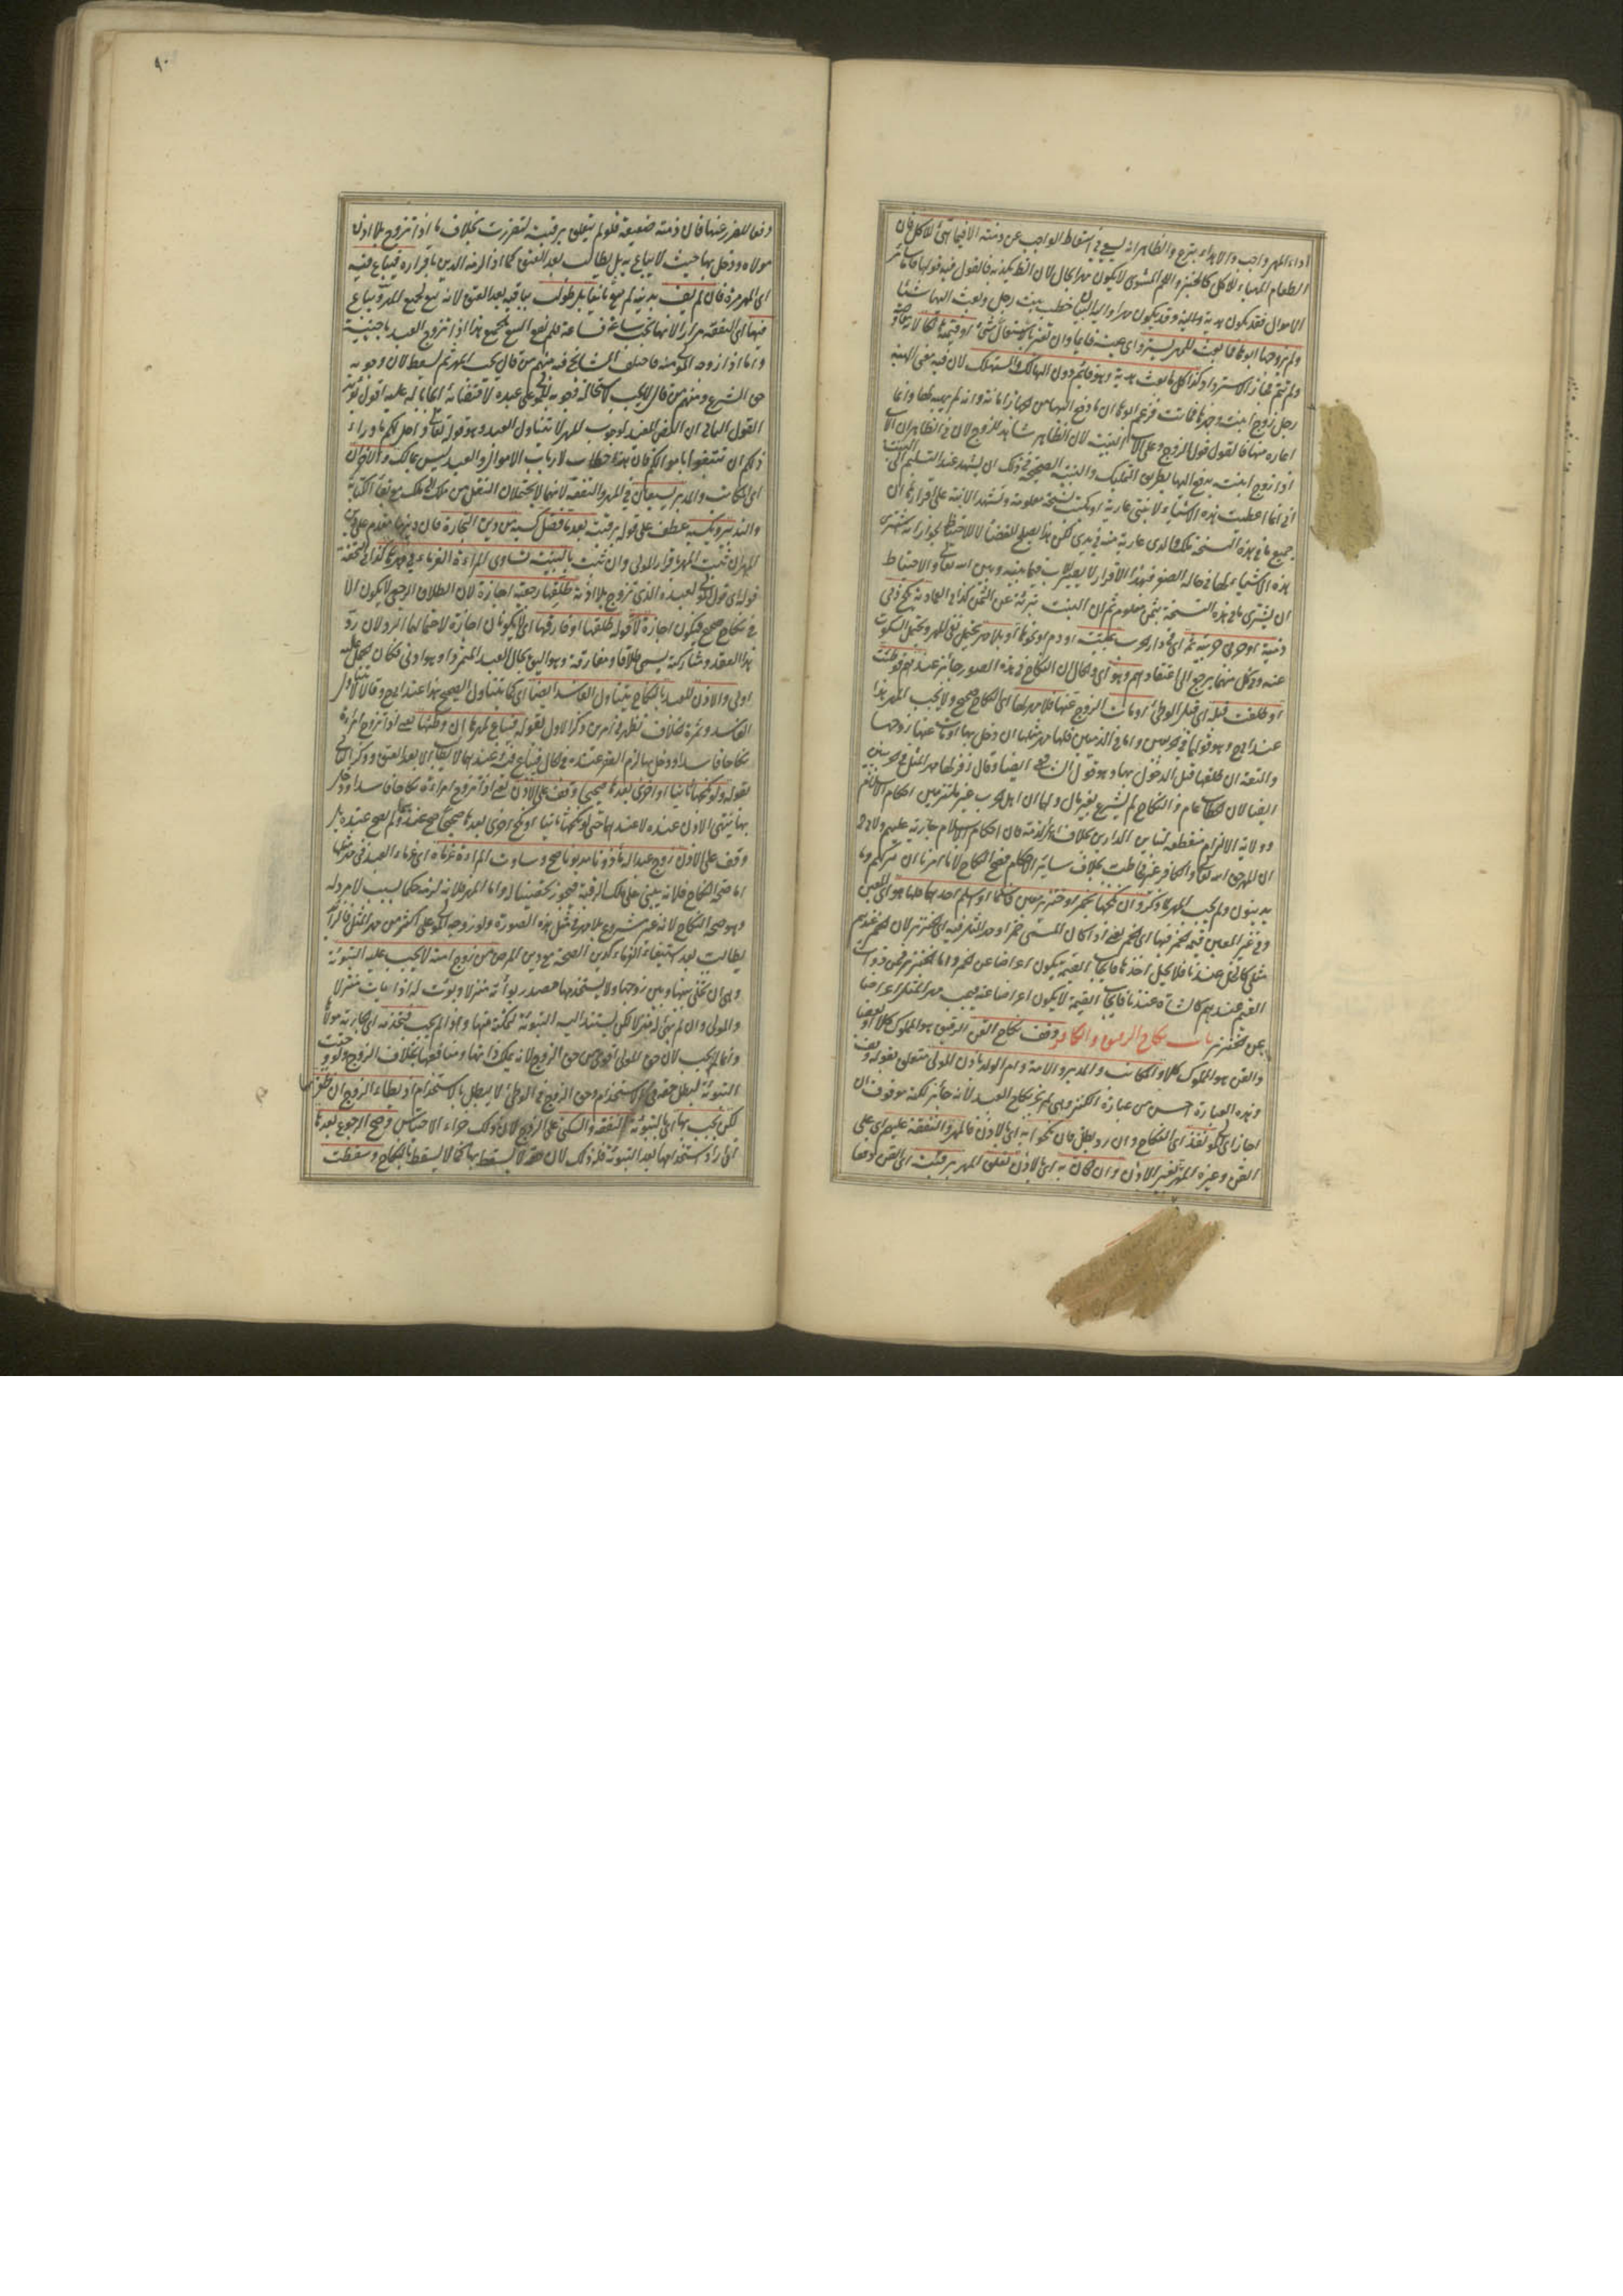 اداء المهر واجب والاهداء تبرع والظاهر انه يسعى في اسقاط الواجب عن ذمته الا فيما تهيأ للاكل فان
الطعام المهيأ للاكل كالخبز واللحم المشوي لا يكون مهرا بحال لان الظاهر يكذبه فالقول فيه قولها فاما سائر
الاموال فقد يكون هدية وقد يكون مهرا خطب بنت رجل وبعث اليها شيئا
ولم يزوجها ابوها فما بعث للمهر يسترد اي عينه قائما وان تغير بالاستعمال او قيمته هالكا
وكذا كل ما بعث هدية وهو قائم دون الهالك والمستهلك لان فيه معنى الهبة
رجل زوج ابنته وجهزها فماتت فزعم ابوها ان ما دفع اليها من الجهاز امانة وانه لم يهبه لها وانما
اعاره منها فالقول قول الزوج وعلى الاب البينة لان الظاهر شاهد للزوج لان في الظاهر ان الاب
اذا زوج ابنته يدفع اليها بطريق التمليك والبينة الصحيحة في ذلك ان يشهد عند التسليم الى البنت
اني انما اعطيت هذه الاشياء لابنتي عارية او يكتب نسخة معلومة وتشهد الابنة على اقرارها ان
جميع ما في هذه النسخة ملك والدي عارية منه في يدي لكن هذا يصلح للقضاء لا للاحتياط لجواز انه اشترى
هذه الاشياء لها في حالة الصغر فبهذا الاقرار لا يصير للاب فيما بينه وبين الله تعالى والاحتياط
ان يشتري ما في هذه النسخة بثمن معلوم ثم ان البنت تبرئه عن الثمن كذا في العمادية نكح ذمي
ذمية او حربي حربية ثمة اي في دار الحرب بميتة او دم او نحوها او بلا مهر يحتمل نفي المهر ويحتمل السكوت
عنه وفي كل منهما يرجع الى اعتقادهم وهو اي والحال ان النكاح في هذه الصور جائز عندهم فوطئت
او طلقت قبله اي قبل الوطئ او مات الزوج عنها فلا مهر لها اي النكاح صحيح ولا يجب المهر هذا
عند ابي ح وهو قولهما في الحربيين واما في الذميين فلها مهر مثلها ان دخل بها او مات عنها زوجها
والمتعة ان طلقها قبل الدخول بها وهو قول الشافعي ايضا وقال زفر لها مهر المثل في الحربيين
ايضا لان الخطاب عام والنكاح لم يشرع بغير مال ولهما ان اهل الحرب غير ملتزمين احكام الاسلام
وولاية الالزام منقطعة لتباين الدارين بخلاف اهل الذمة فان احكام الاسلام جارية عليهم ولابي ح
ان المهر حق الله تعالى والكافر غير مخاطب بخلاف سائر الاحكام فصح النكاح لانا امرنا ان نتركهم وما
يدينون ولم يجب المهر لما ذكر وان نكحها بخمر او خنزير معين فاسلما او اسلم احدهما فلها هو اي المعين
وفي غير المعين قيمة الخمر فيها اي الخمر يعني اذا كان المسمى خمرا ومهر المثل فيه اي الخنزير لان الخمر عندهم
مثلي كالخل عندنا فلا يحل اخذها فايجاب القيمة يكون اعراضا عن الخمر واما الخنزير فمن ذوات
القيم عندهم كالشاة عندنا فايجاب القيمة لا يكون اعراضا عنه فيجب مهر المثل اعراضا
عن الخنزير باب نكاح الرقيق والكافر وقف نكاح القن الرقيق هو المملوك كلا او بعضا
والقن هو المملوك كلا والمكاتب والمدبر والامة وام الولد باذن المولى متعلق بقوله وقف
وهذه العبارة احسن من عبارة الكنز وهي لم يجز نكاح العبد لانه جائز لكنه موقوف ان
اجاز اي المولى نفذ اي النكاح وان رد بطل فان نكحوا به اي بالاذن فالمهر والنفقة عليهم اي على
القن وغيره المهر لغير الاذن وان كان به اي بالاذن تعلق المهر برقبته اي القن دفعا
دفعا للضرر عنها فان ذمته ضعيفة فلو لم يتعلق برقبته لتضررت بخلاف ما اذا تزوج بلا اذن
مولاه ودخل بها حيث لا يباع به بل يطالب بعد العتق كما اذا لزمه الدين باقراره فيباع فيه
اي المهر مرة فان لم يف بدينه لم يبع ثانيا بل طولب بباقيه بعد العتق لانه بيع لجميع المهر ويباع
فيها اي النفقة مرارا لانها تجب ساعة فساعة فلم يقع البيع لجميع هذا اذا تزوج العبد باجنبية
واما اذا زوجه المولى امته فاختلف المشايخ فيه منهم من قال يجب المهر ثم يسقط لان وجوبه
حق الشرع ومنهم من قال لا يجب لاستحالة وجوبه للمولى على عبده
القول الثاني ان النص المفيد لوجوب المهر لا يتناول العبد وهو قوله تعالى واحل لكم ما وراء
ذلكم ان تبتغوا باموالكم فان هذا خطاب لارباب الاموال والعبد ليس بمالك والاخران
اي المكاتب والمدبر يسعيان في المهر والنفقة لانهما لا يحتملان النقل من ملك الى ملك مع بقاء الكتابة
والتدبير وبكسبه عطف على قوله برقبته بعد ما فضل كسبه من دين التجارة فان دينها مقدم على دين
المهر ان ثبت المهر باقرار المولى وان ثبت بالبينة تساوي المرأة الغرماء في مهرها كذا في التحفة
قوله اي قول المولى لعبده الذي تزوج بلا اذنه طلقها رجعية اجازة لان الطلاق الرجعي لا يكون الا
في نكاح صحيح فيكون اجازة لا قوله طلقها او فارقها اي لا يكونان اجازة لاحتمالهما الرد لان رد
هذا العقد ومتاركته يسمى طلاقا ومفارقة وهو اليق بحال العبد المتمرد او هو ادنى فكان الحمل عليه
اولى والاذن للعبد بالنكاح يتناول الفاسد ايضا اي كما يتناول الصحيح هذا عند ابي ح وقالا لا يتناول
الفاسد وثمرة الخلاف تظهر في امرين ذكر الاول بقوله فيباع لمهرها ان وطئها يعني اذا تزوج امرأة
نكاحا فاسدا ودخل بها لزم المهر عنده في الحال فيباع فيه وعندهما لا يطالب الا بعد العتق وذكر الثاني
بقوله ولو نكحها ثانيا او اخرى بعدها صحيحا وقف على الاذن يعني اذا تزوج امرأة نكاحا فاسدا ودخل
بها ينتهي الاذن عنده لا عندهما حتى لو نكحها ثانيا او نكح اخرى بعدها صحيحا صح عندهما ولم يصح عنده بل
وقف على الاذن زوج عبدا له مأذونا مديونا صح وساوت المرأة غرماءه اي غرماء العبد في مهر مثلها
اما صحة النكاح فلانه يبتني على ملك الرقبة فيجوز تحصينا له واما المهر فلانه لزمه حكما بسبب لا مرد له
وهو صحة النكاح لانه غير مشروع بلا مهر في مثل هذه الصورة ولو زوجه المولى على اكثر من مهر المثل فالزائد
يطالب بعد استيفاء الغرماء كدين الصحة مع دين المرض من زوج امته لا يجب عليه التبوئة
وهي ان يخلي بينها وبين زوجها ولا يستخدمها مصدر بوأته منزلا وبوئت له اذا هيأت منزلا
والمولى وان لم يهيئ له منزلا لكن يستند اليه التبوئة لتمكنه منها واذا لم يجب فتخدمه اي الجارية مولاها
وانما لم يجب لان حق المولى اقوى من حق الزوج لانه يملك ذاتها ومنافعها بخلاف الزوج ولو وجبت
التبوئة لبطل حقه في الاستخدام وحق الزوج في الوطئ لا يبطل بالاستخدام اذ يطأ الزوج ان ظفر بها
لكن يجب بها اي بالتبوئة النفقة والسكنى على الزوج لان ذلك جزاء الاحتباس وصح الرجوع بعدها
اي اراد استخدامها بعد التبوئة فله ذلك لان حقه لا يسقط بها كما لا يسقط بالنكاح وسقطت